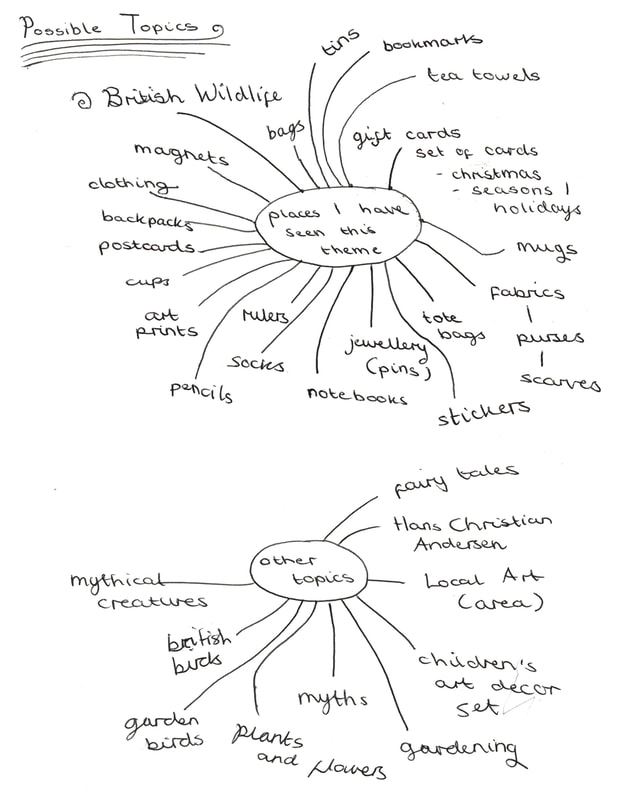 Possible Topics
British Wildlife
places I have
seen this
theme
tins
bookmarks
tea towels
gift cards
set of cards
- christmas
- seasons /
holidays
mugs
fabrics
purses
scarves
tote
bags
stickers
jewellery
(pins)
notebooks
rulers
socks
pencils
art
prints
cups
postcards
backpacks
clothing
magnets
bags
other
topics
fairy tales
Hans Christian
Andersen
Local Art
(area)
children's
art decor
set
gardening
myths
plants
and flowers
garden
birds
british
birds
mythical
creatures